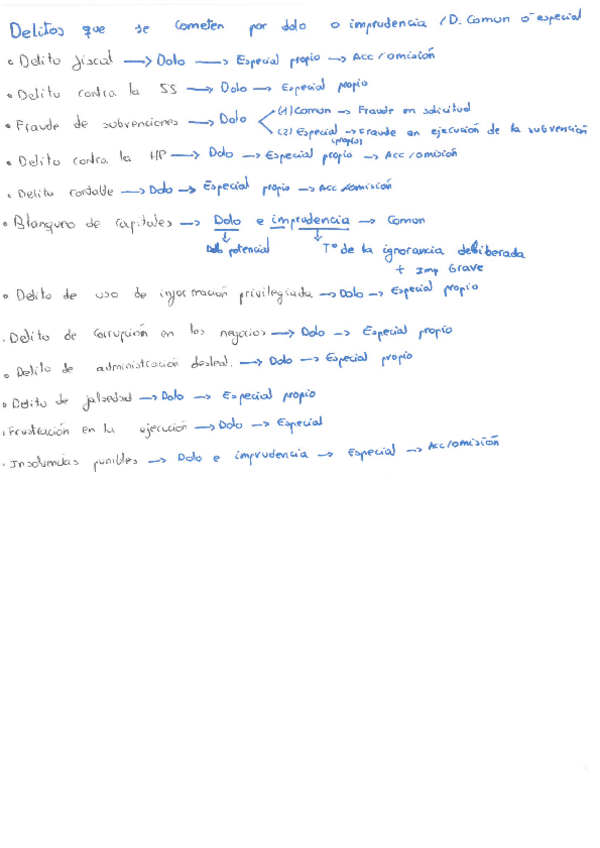 Delitos que se cometen por dolo o imprudencia / D. Comun o especial
• Delito fiscal → Dolo → Especial propio → Acc/omisión
• Delito contra la SS → Dolo → Especial propio
• Fraude de subvenciones → Dolo
(1) Comun → Fraude en solicitud
(2) Especial → Fraude en ejecución de la subvención
(propio)
• Delito contra la HP → Dolo → Especial propio → Acc/omisión
• Delito contable → Dolo → Especial propio → Acc/omisión
• Blanqueo de capitales → Dolo e imprudencia → Comun
Dolo potencial
Tº de la ignorancia deliberada
+ Imp Grave
• Delito de uso de información privilegiada → Dolo → Especial propio
• Delito de corrupción en los negocios → Dolo → Especial propio
• Delito de administración desleal. → Dolo → Especial propio
• Delito de falsedad → Dolo → Especial propio
• Frustración en la ejecución → Dolo → Especial
• Insolvencias punibles → Dolo e imprudencia → Especial → Acc/omisión